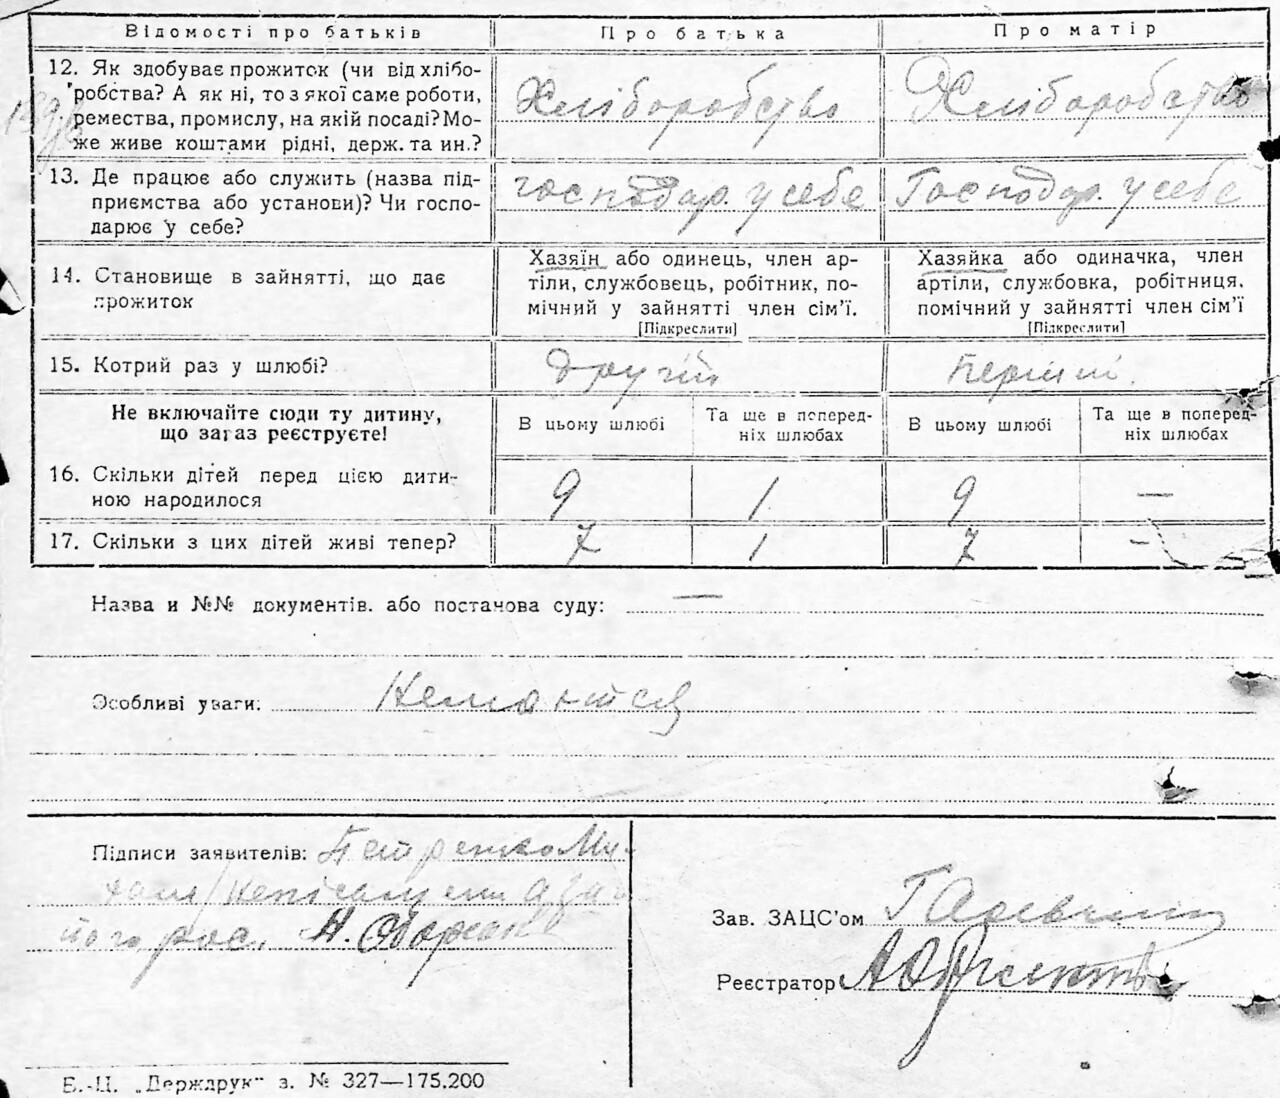 Відомості про батьків Про батька Про матір
12. Як здобуває прожиток (чи від хлібо-
робства? А як ні, то з якої саме роботи,
ремества, промислу, на якій посаді? Мо-
же живе коштами рідні, держ. та ин.?
Хліборобство Хліборобство
13. Де працює або служить (назва під-
приємства або установи)? Чи госпо-
дарює у себе?
господар. у себе Господар. у себе
14. Становище в зайнятті, що дає
прожиток
Хазяїн або одинець, член ар-
тіли, службовець, робітник, по-
мічний у зайнятті член сім'ї.
[Підкреслити]
Хазяйка або одиначка, член
артіли, службовка, робітниця,
помічний у зайнятті член сім'ї
[Підкреслити]
15. Котрий раз у шлюбі? другий перший
Не включайте сюди ту дитину,
що зараз реєструєте!
В цьому шлюбі Та ще в поперед-
ніх шлюбах В цьому шлюбі Та ще в поперед-
ніх шлюбах
16. Скільки дітей перед цією дити-
ною народилося 9 1 9 —
17. Скільки з цих дітей живі тепер? 7 1 7 -
Назва и №№ документів. або постанова суду: —
Особливі уваги:
Підписи заявителів: Петренко Ми-
його рос.
Зав. ЗАЦС'ом
Реєстратор
Б.-Ц. „Держдрук" з. № 327—175.200